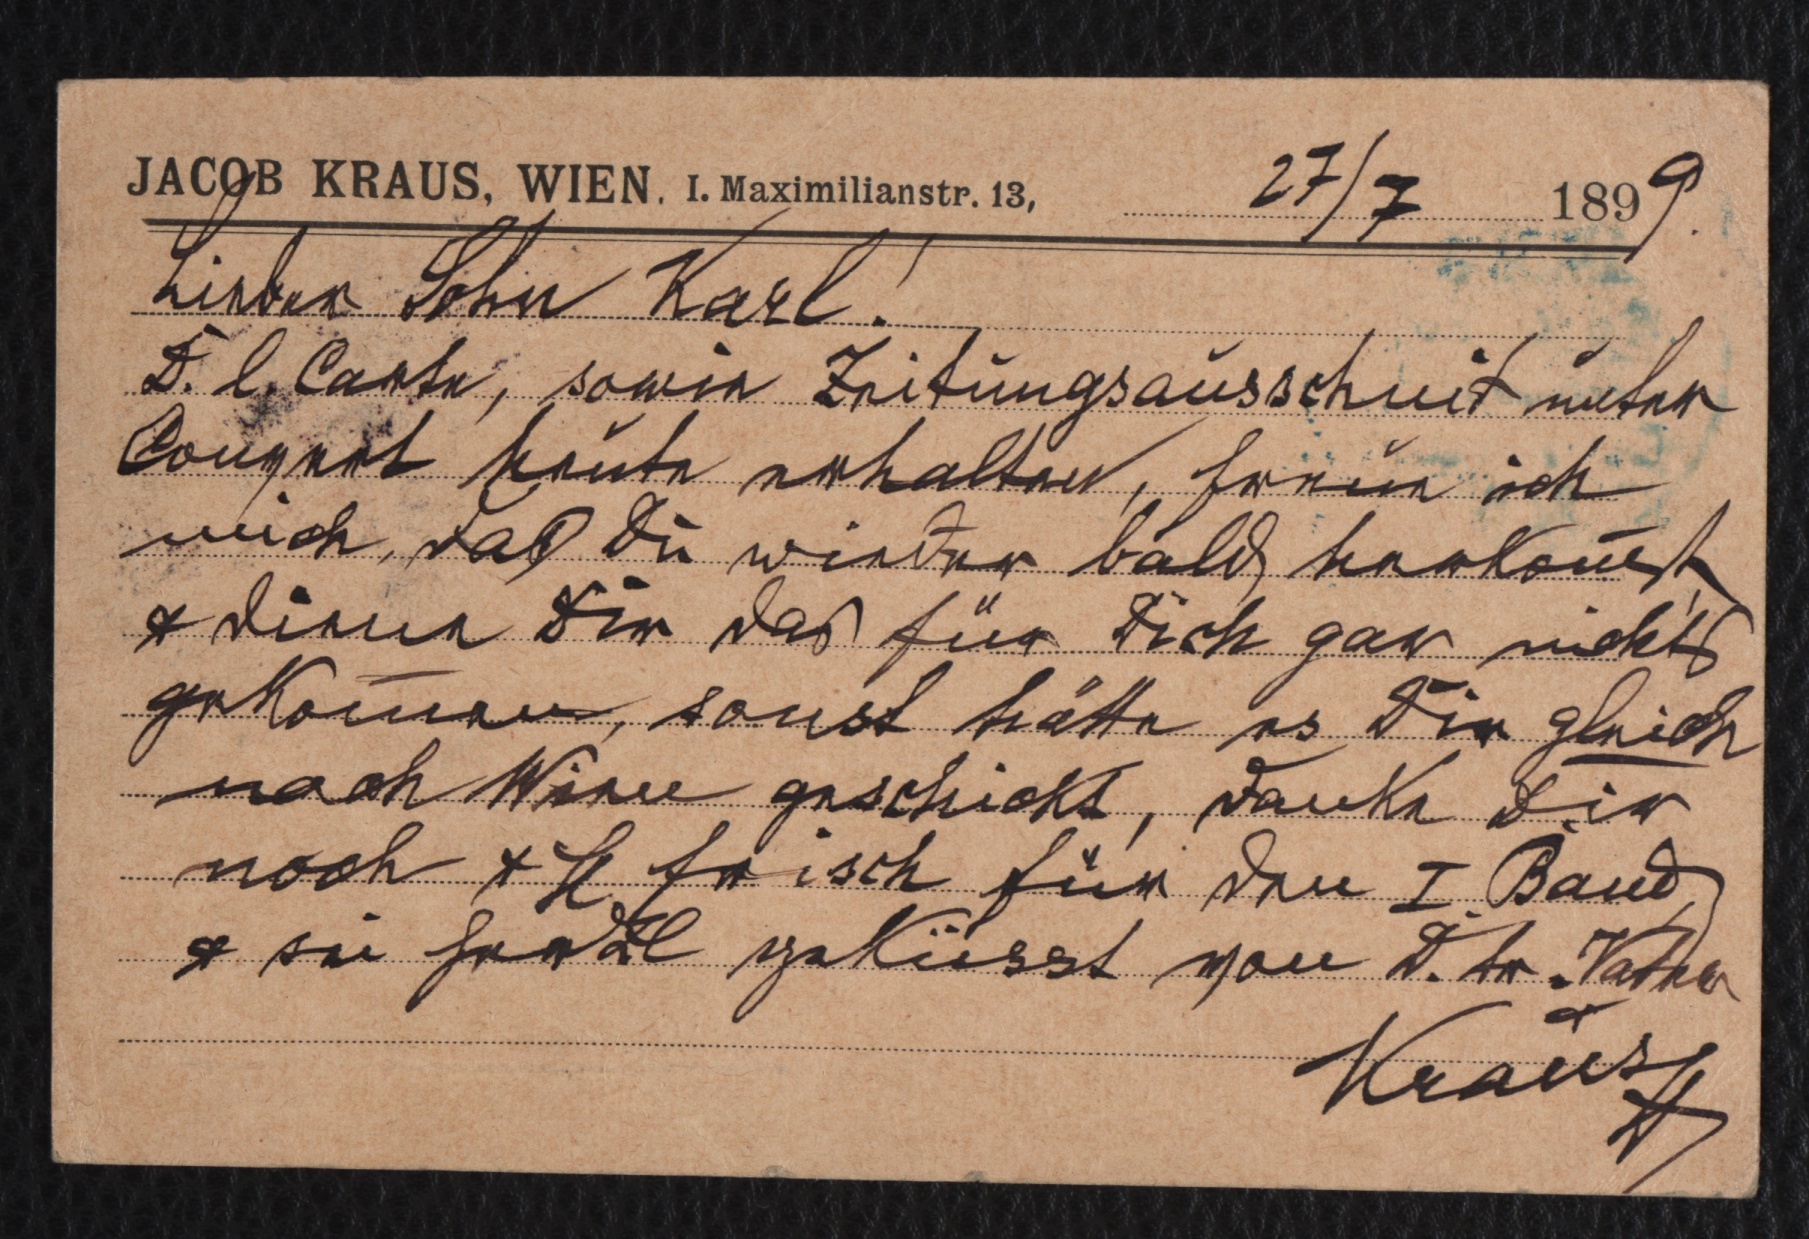 JACOB KRAUS, WIEN, I. Maximilianstr. 13, 27/7 1899.
Lieber Sohn Karl!
D. l. Carte, sowie Zeitungsausschnit unter
Couvert heute erhalten, freue ich
mich, daß Du wieder bald herkom̅st
& diene Dir daß für Dich gar nichts
gekom̅en, sonst hätte es Dir gleich
nach Wien geschickt, danke Dir
noch frisch für den I. Band
& sei herzl geküsst von D. tr. Vater
Kraus